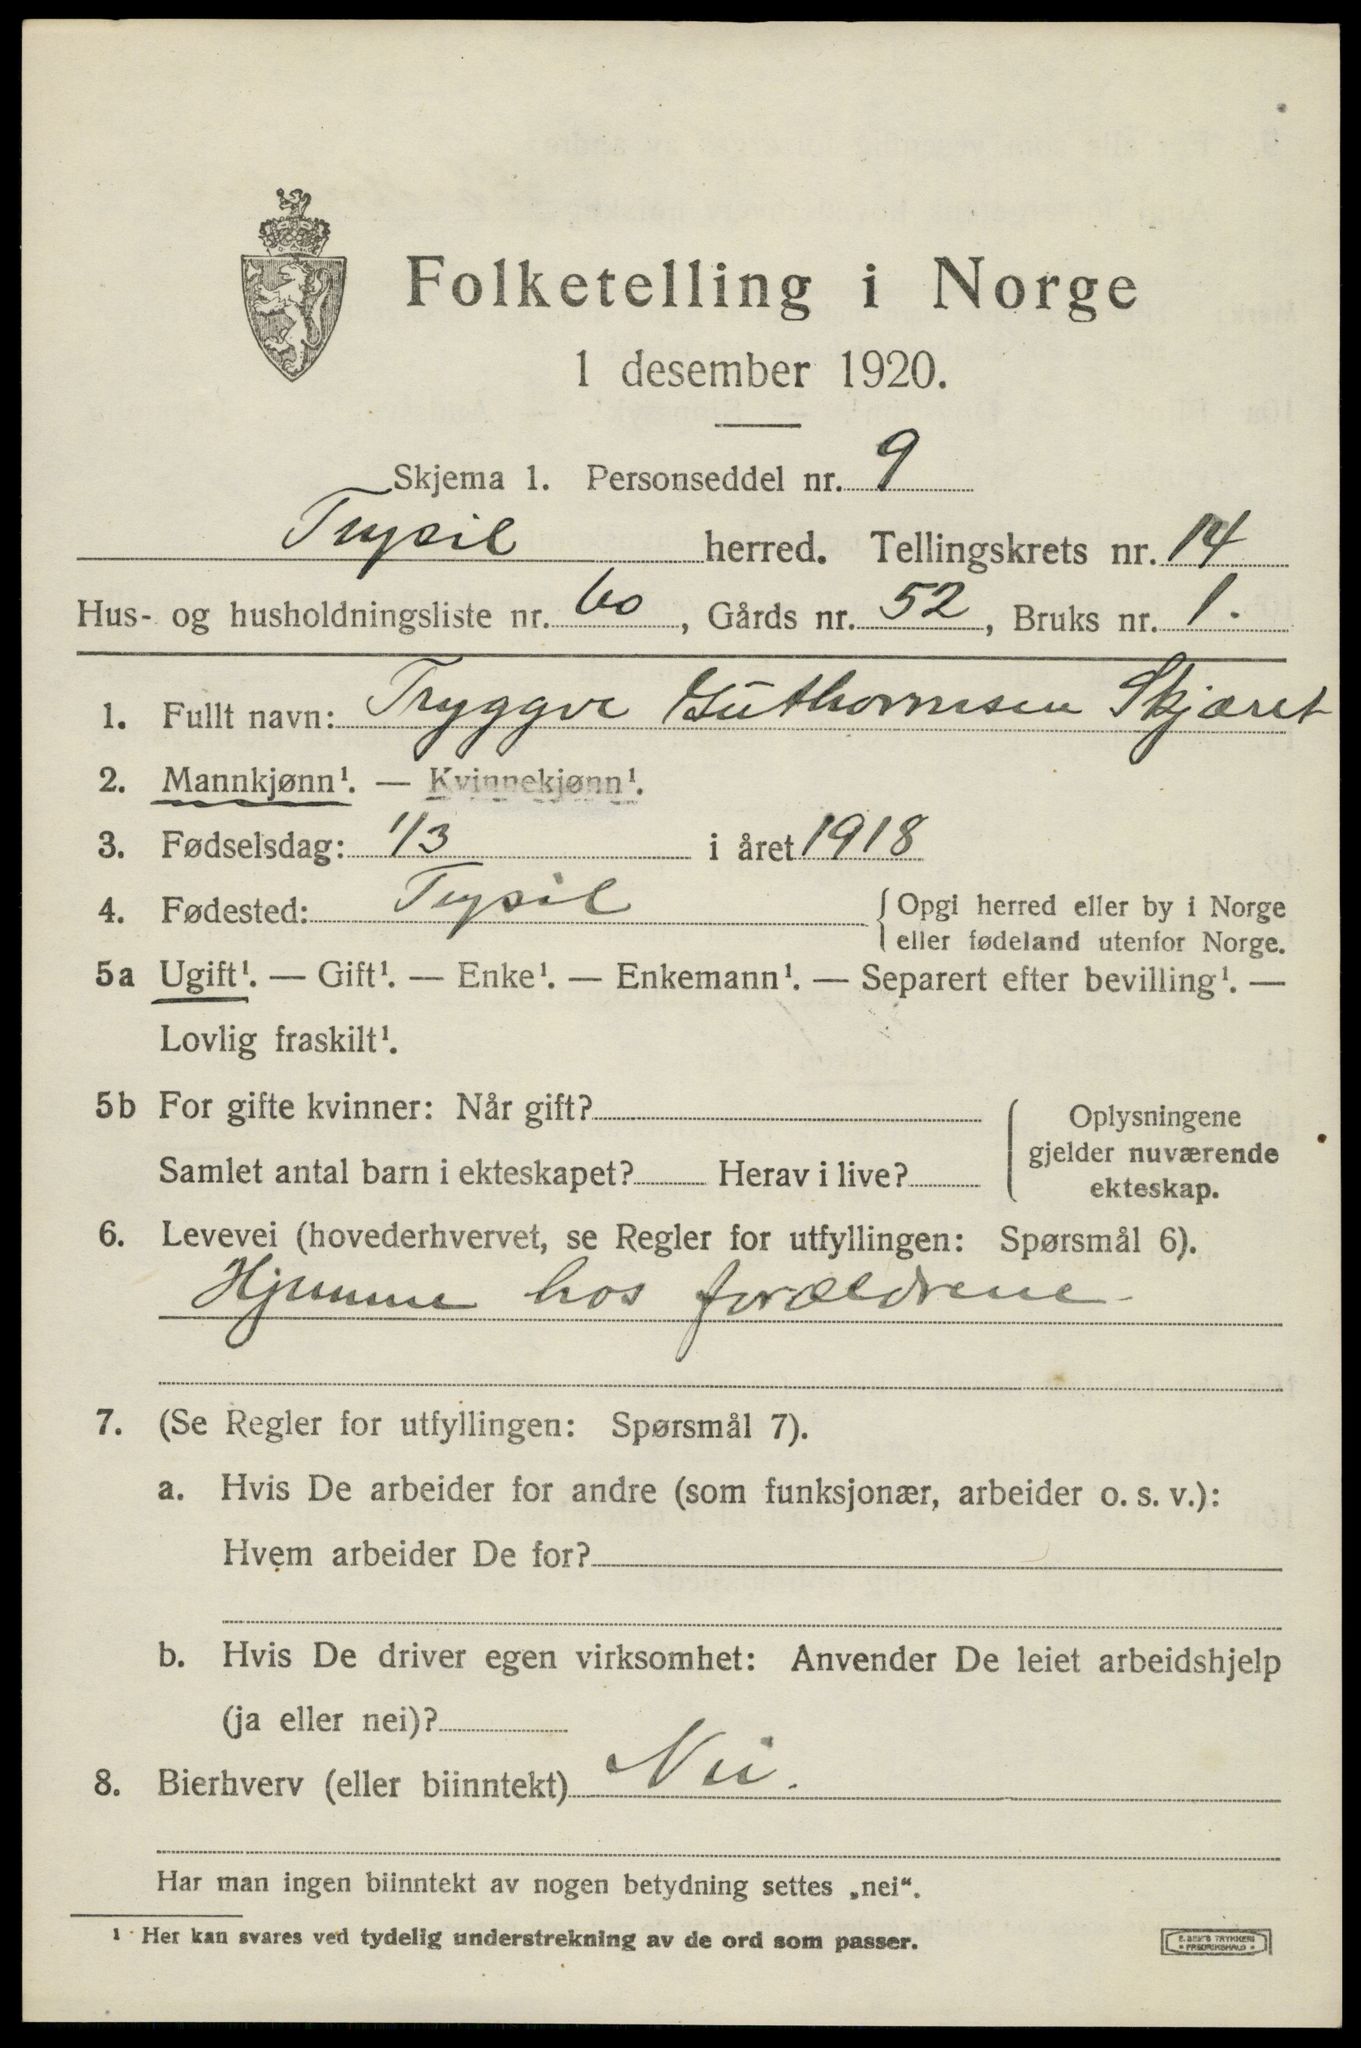 Folketelling i Norge
1 desember 1920.
Skjema 1. Personseddel nr. 9
Trysil herred. Tellingskrets nr. 14
Hus- og husholdningsliste nr. 60, Gårds nr. 52, Bruks nr. 1.
1. Fullt navn: Tryggve Guthormsen Skjæret
2. Mannkjønn¹. — Kvinnekjønn¹.
3. Fødselsdag: 1/3 i året 1918
4. Fødested: Trysil { Opgi herred eller by i Norge
eller fødeland utenfor Norge.
5a Ugift¹. — Gift¹. — Enke¹. — Enkemann¹. — Separert efter bevilling¹. —
Lovlig fraskilt¹.
5b For gifte kvinner: Når gift?
Samlet antal barn i ekteskapet? Herav i live?
Oplysningene
gjelder nuværende
ekteskap.
6. Levevei (hovederhvervet, se Regler for utfyllingen: Spørsmål 6).
Hjemme hos forældrene
7. (Se Regler for utfyllingen: Spørsmål 7).
a. Hvis De arbeider for andre (som funksjonær, arbeider o. s. v.):
Hvem arbeider De for?
b. Hvis De driver egen virksomhet: Anvender De leiet arbeidshjelp
(ja eller nei)?
8. Bierhverv (eller biinntekt) Nei.
Har man ingen biinntekt av nogen betydning settes „nei“.
¹ Her kan svares ved tydelig understrekning av de ord som passer.
E. SEM'S TRYKKERI
FREDRIKSHALD